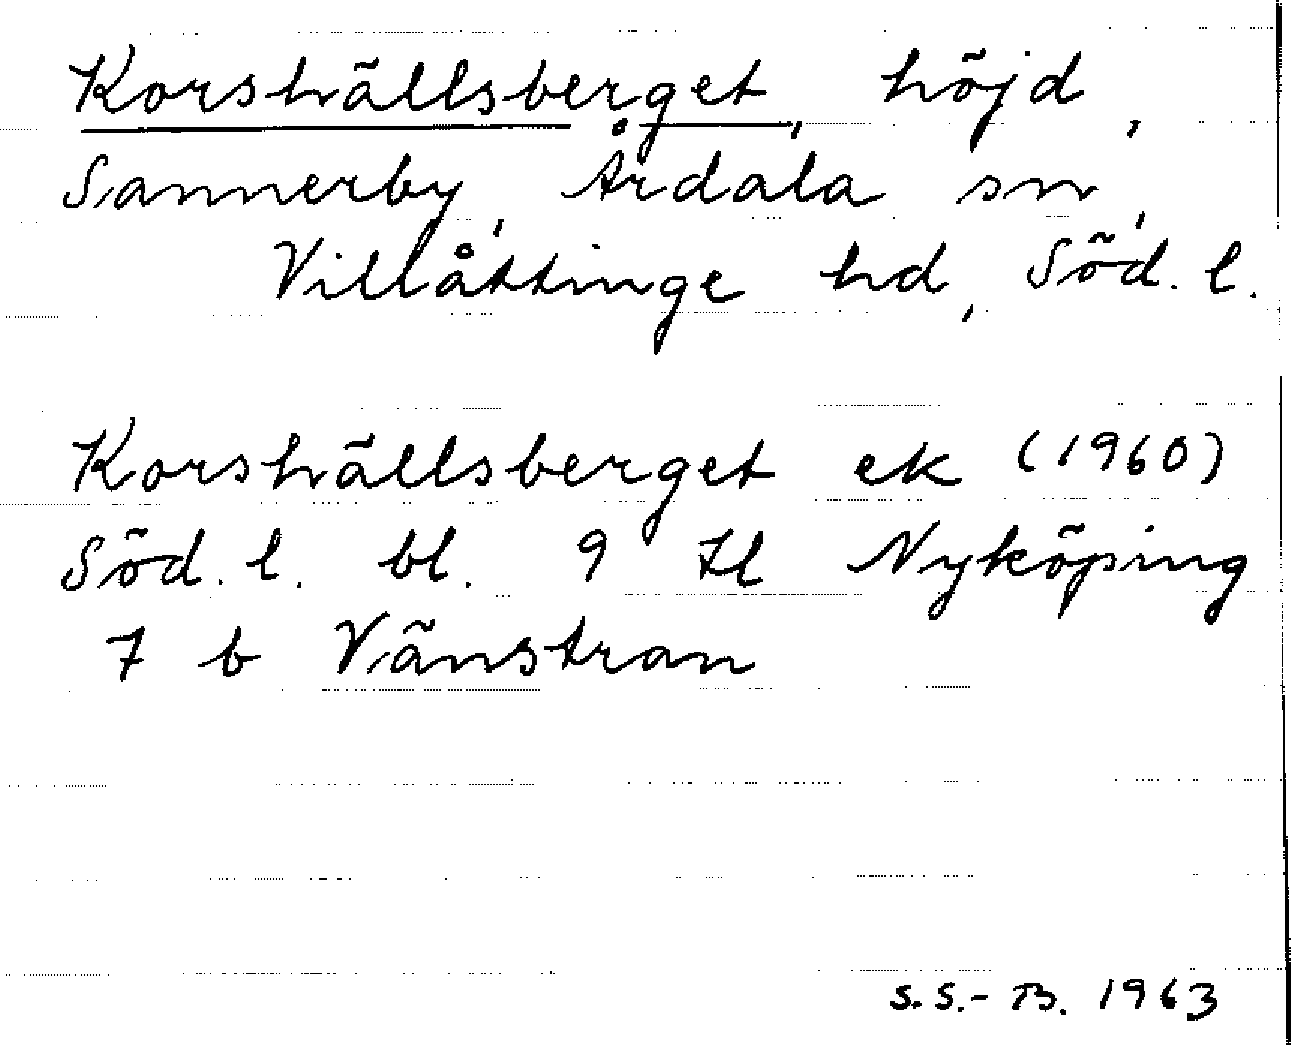 Korshällsberget, höjd,
Sannerby, Årdala sn,
Villåttinge hd, Söd. l.
Korshällsberget ek (1960)
Söd. l. bl. 9 tl Nyköping
7 b Vänstran
S.S.-B. 1963